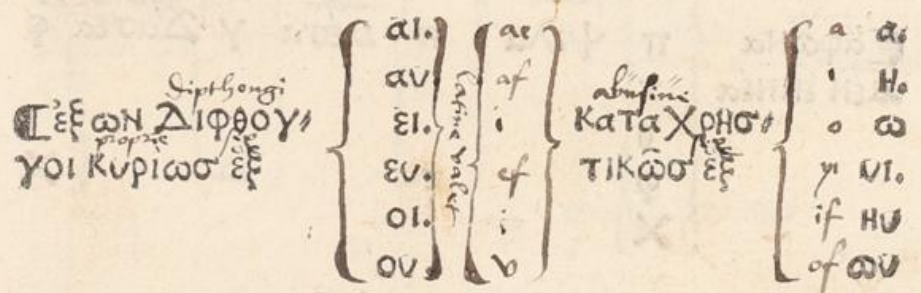 dipthongi
ἐξ ὧν Διφθογ〃
proprie
γοι κυρίωσ ἓξ
αι.
αυ
ει.
ευ.
οι.
ου.
latine valet
ae
af
i
ef
i
v
abusiue
καταχρησ〃
τικῶσ ἓξ
a ᾳ.
i ῃ.
o ῳ
yi υι.
if ηυ
of ωυ